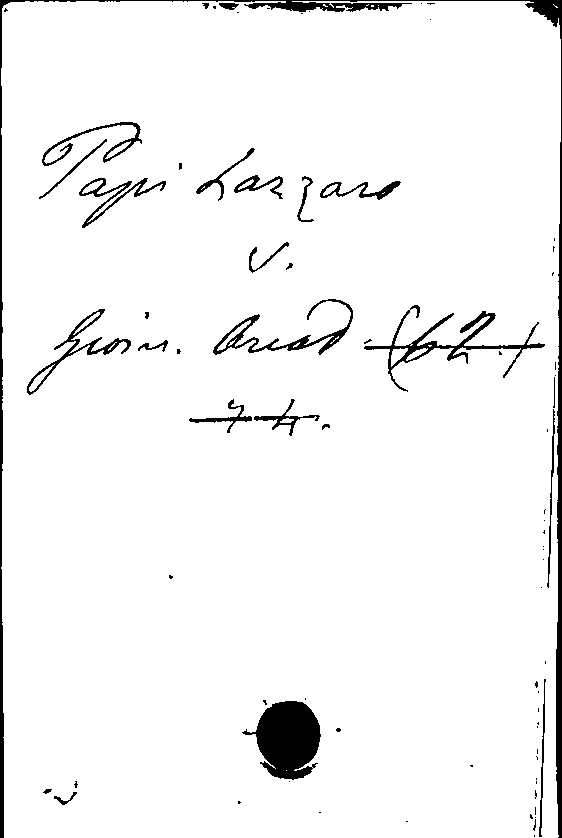 Papi Lazzaro
v.
Giorn. Arcad. (62.)
74.